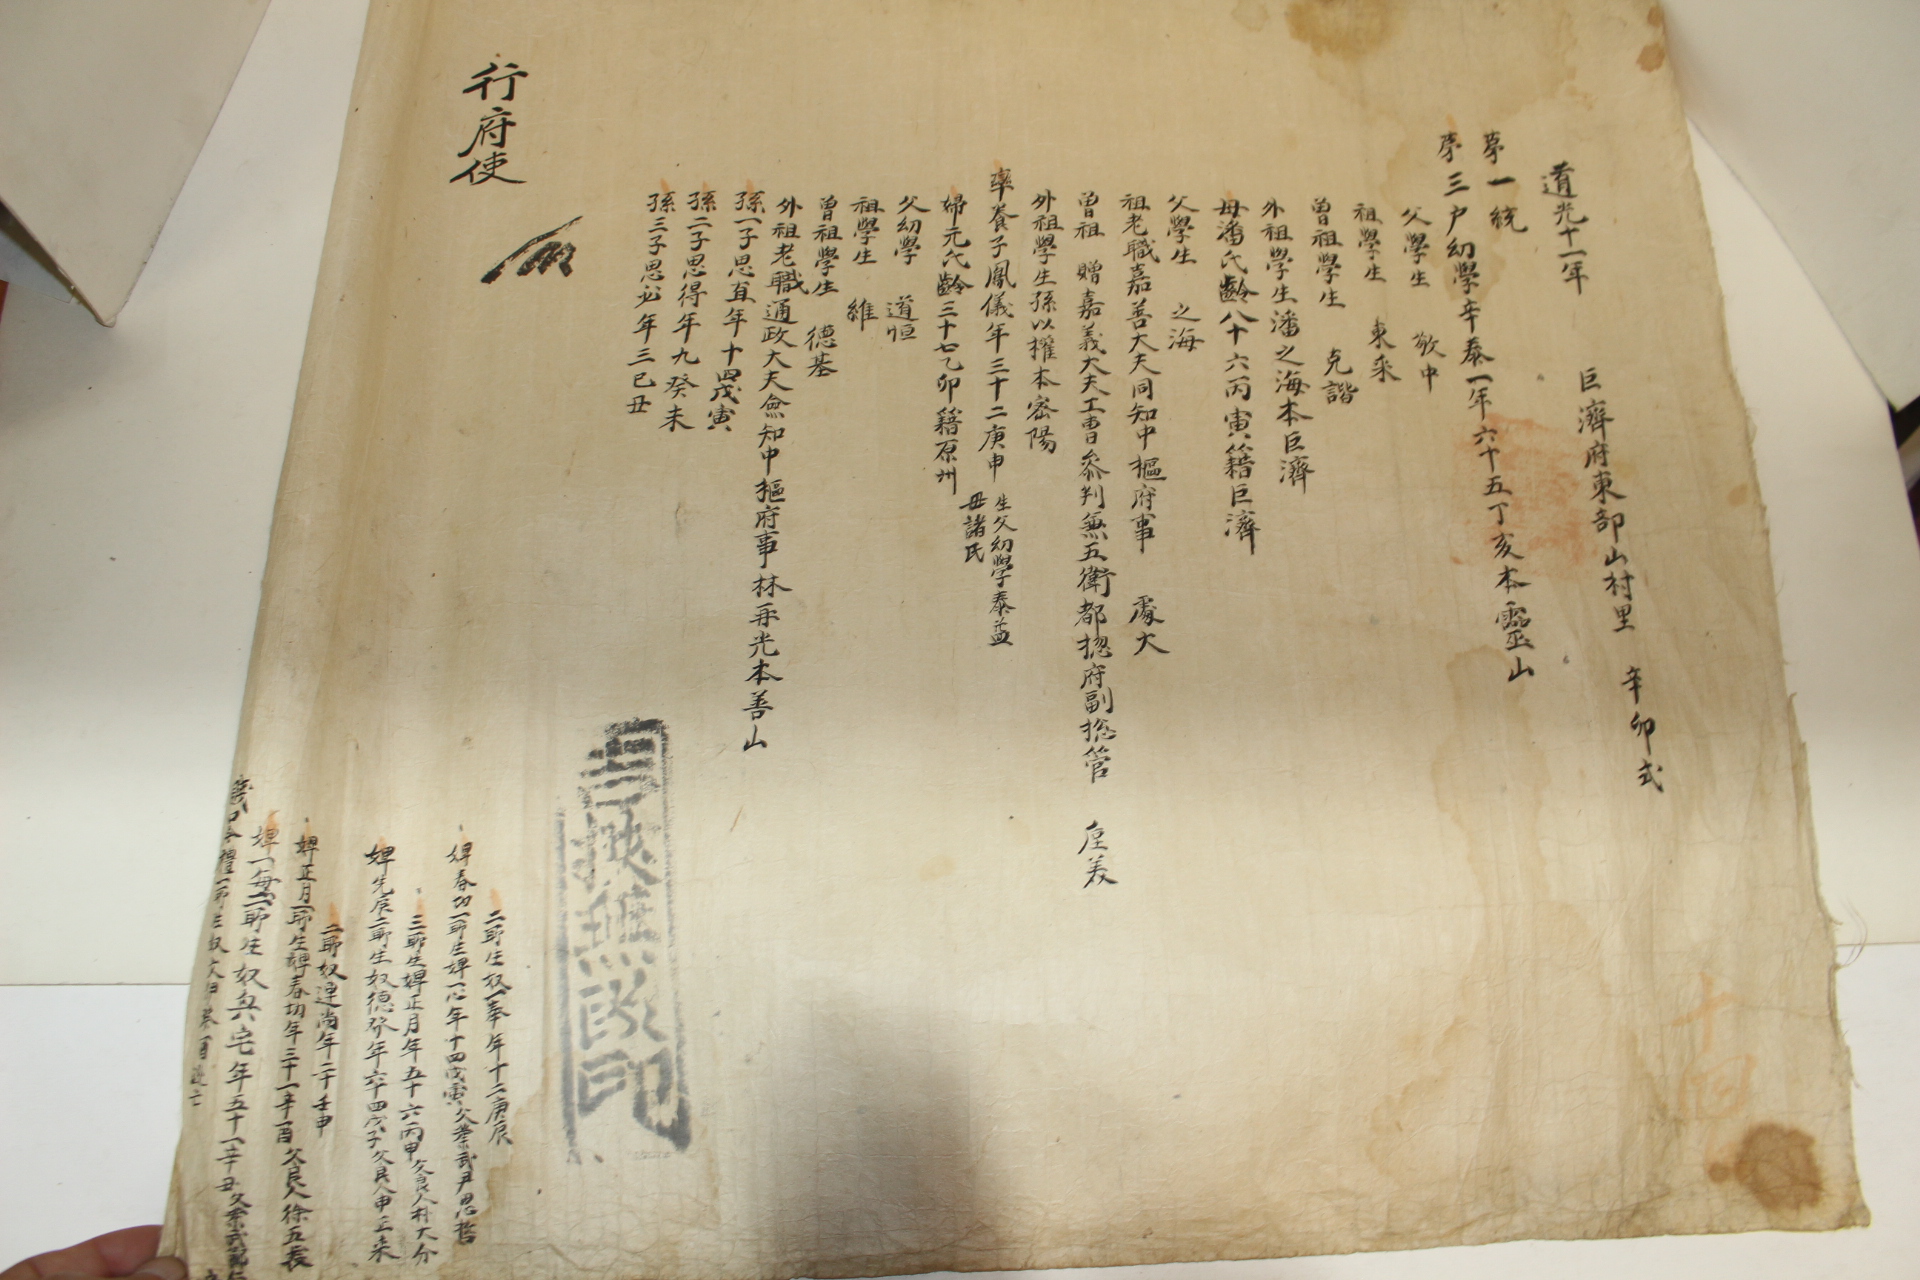 道光十一年 巨濟府東部山村里 辛卯式
第一統
第三戶幼學辛泰一年六十五丁亥本靈山
父學生 敬中
祖學生 東采
曾祖學生 克諧
外祖學生潘之海本巨濟
母潘氏齡八十六丙寅籍巨濟
父學生 之海
祖老職嘉善大夫同知中樞府事 厚大
曾祖 贈嘉義大夫工曹參判兼五衛都摠府副摠管 座美
外祖學生孫以權本密陽
率養子鳳儀年三十二庚申 生父幼學泰益 母諸氏
婦元氏齡三十七乙卯籍原州
父幼學 道恒
祖學生 維
曾祖學生 德基
外祖老職通政大夫僉知中樞府事林再光本善山
孫一子思直年十四戊寅
孫二子思得年九癸未
孫三子思必年三己丑
行府使
二所生奴一奉年十二庚辰
婢春切一所生婢一心年十四戊寅父業武尹思哲
三所生婢正月年五十六丙申父良人朴大分
婢先辰二所生奴德癸年六十四戊子父良人申正采
二所奴連尚年二十壬申
婢正月一所生婢春切年三十一辛酉父良人徐五長
婢一每二所生奴兵宅年五十一辛丑父業武